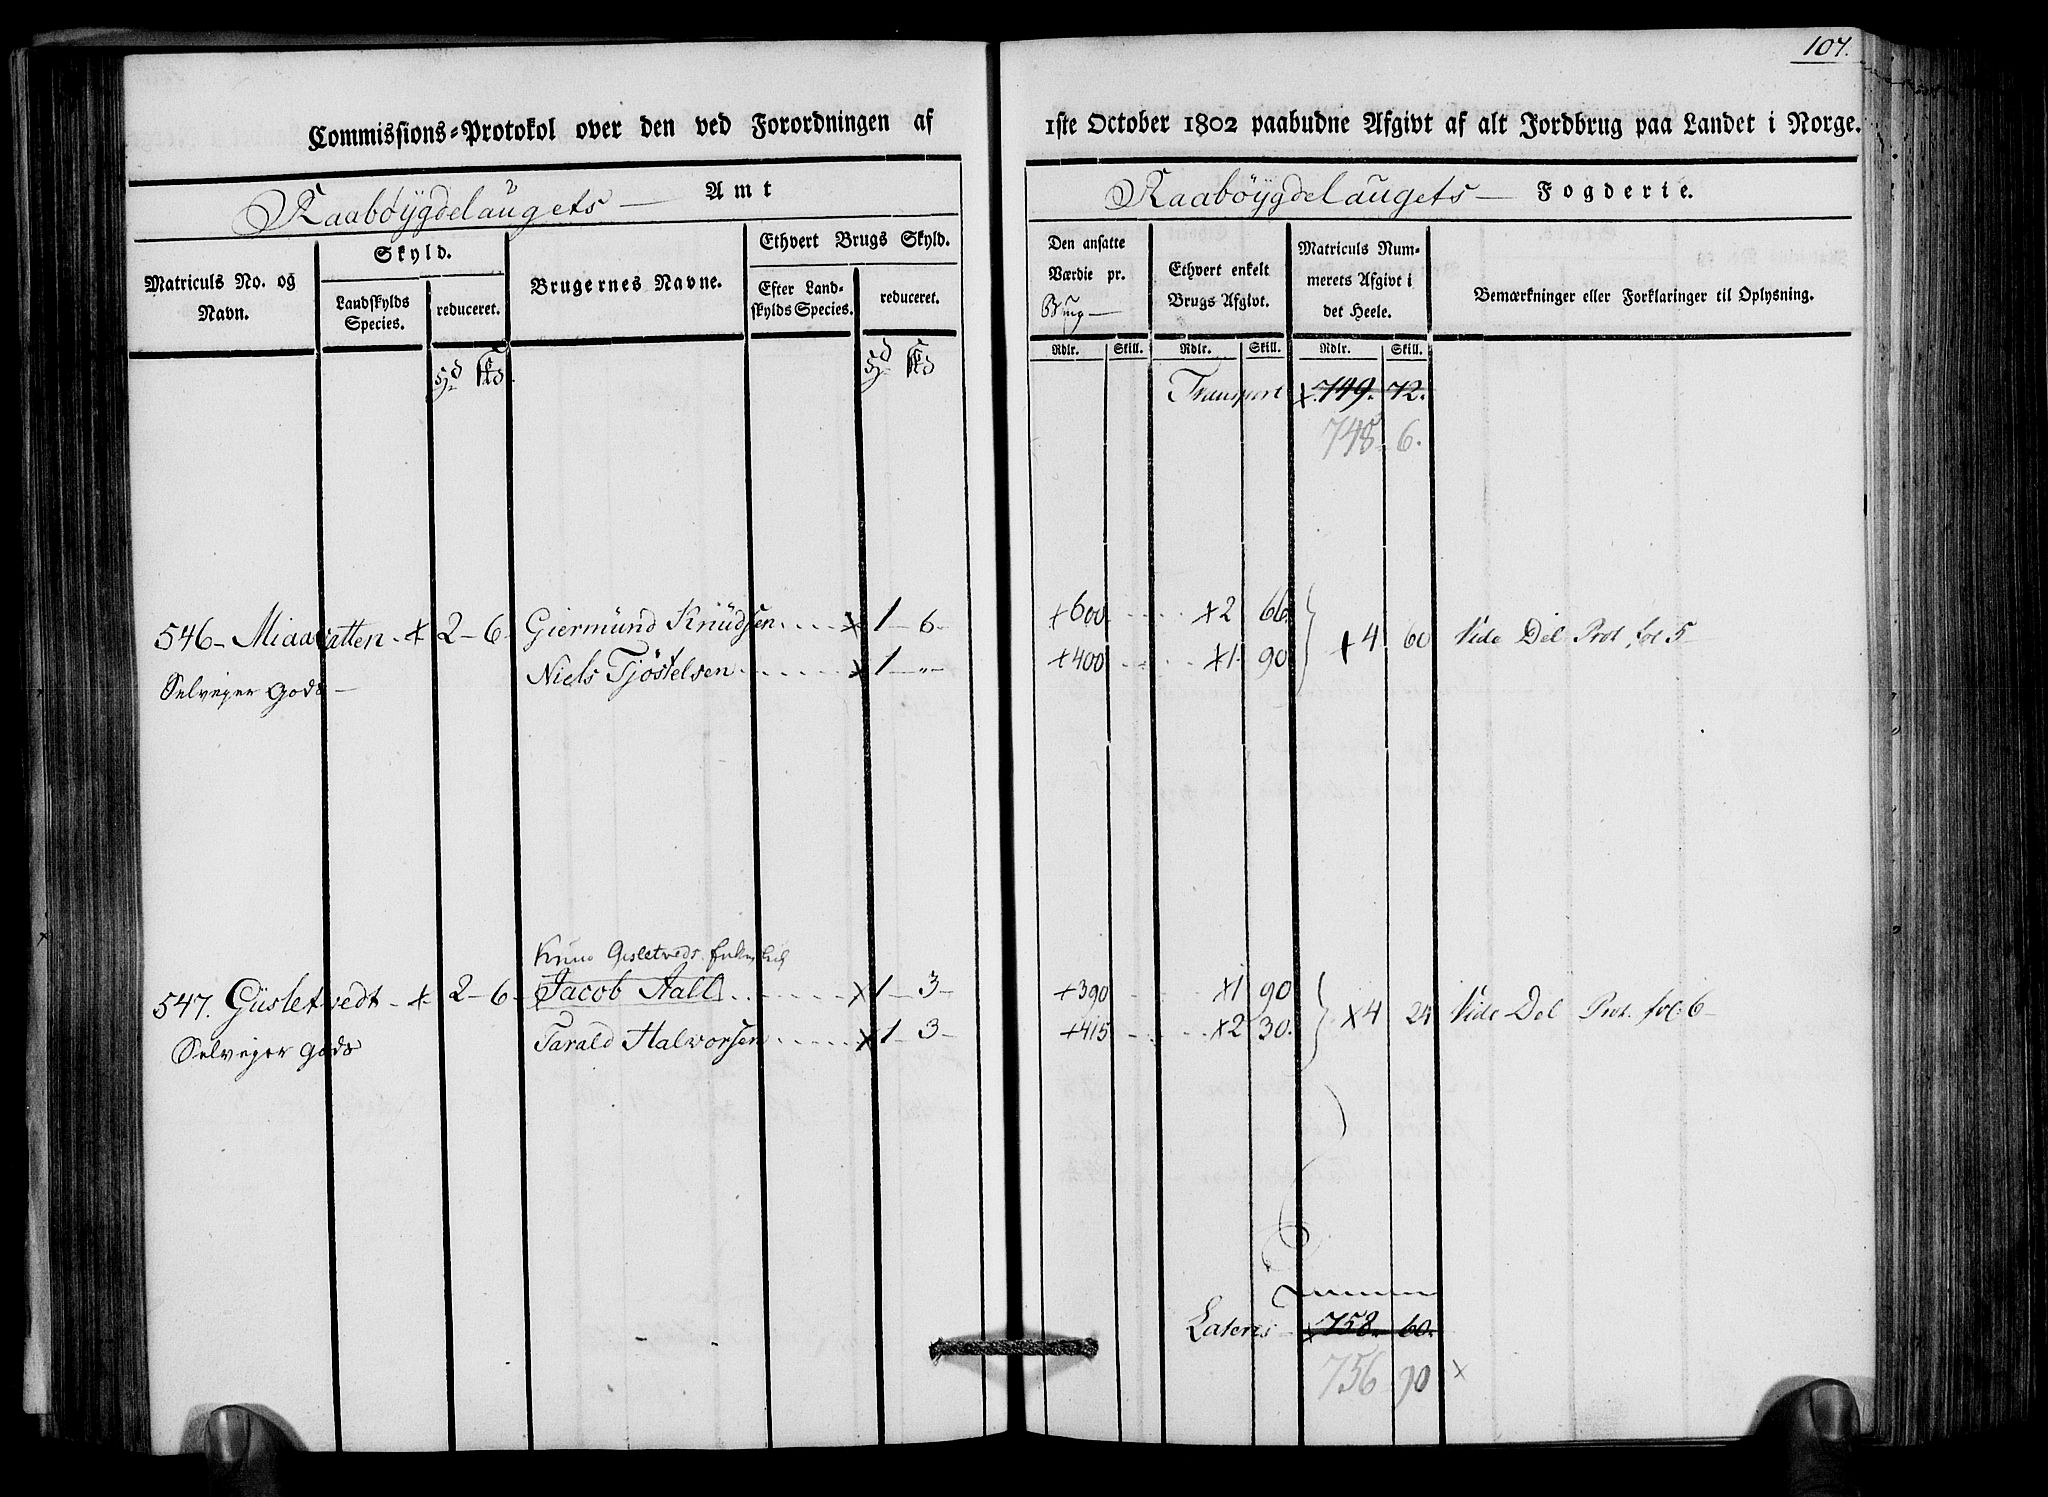 107.
Commissions-Protokol over den ved Forordningen af 1ste October 1802 paabudne Afgivt af alt Jordbrug paa Landet i Norge.
Raabøygdelaugets — Amt
Raabøygdelaugets — Fogderie.
Matriculs No. og Navn.
Skyld.
Landskylds Species.
reduceret.
Brugernes Navne.
Ethvert Brugs Skyld.
Efter Landskylds Species.
reduceret.
Den ansatte Værdie pr. Brug —
Ethvert enkelt Brugs Afgivt.
Matriculs Nummerets Afgivt i det Heele.
Bemærkninger eller Forklaringer til Oplysning.
Rdlr. Skill. Rdlr. Skill. Rdlr. Skill.
Transport x 749. 72.
748. 6.
546 – Miaavatten - x 2 – 6 - Giermund Knudsen . . . . x 1 – 6 – +600 . . . . x2 66. + 4 60 Vide Del Prot. fol 5 –
Selveyer Gods – Niels Tjøstelsen . . . . . x 1 – „ – +400 . . . . x1. 90
Knud Gisletveds
547. Gusletvedt - x 2 – 6 - Jacob Aall . . . . . x 1 – 3 – +390 . . . . x1 90 x4 24 Vide Del Prot. fol: 6 –
Selveyer Gods Tarald Halvorsen . . . . . x 1 – 3 – +415 . . . . x2 30.
Lateris – x 758. 60.
756 90 x